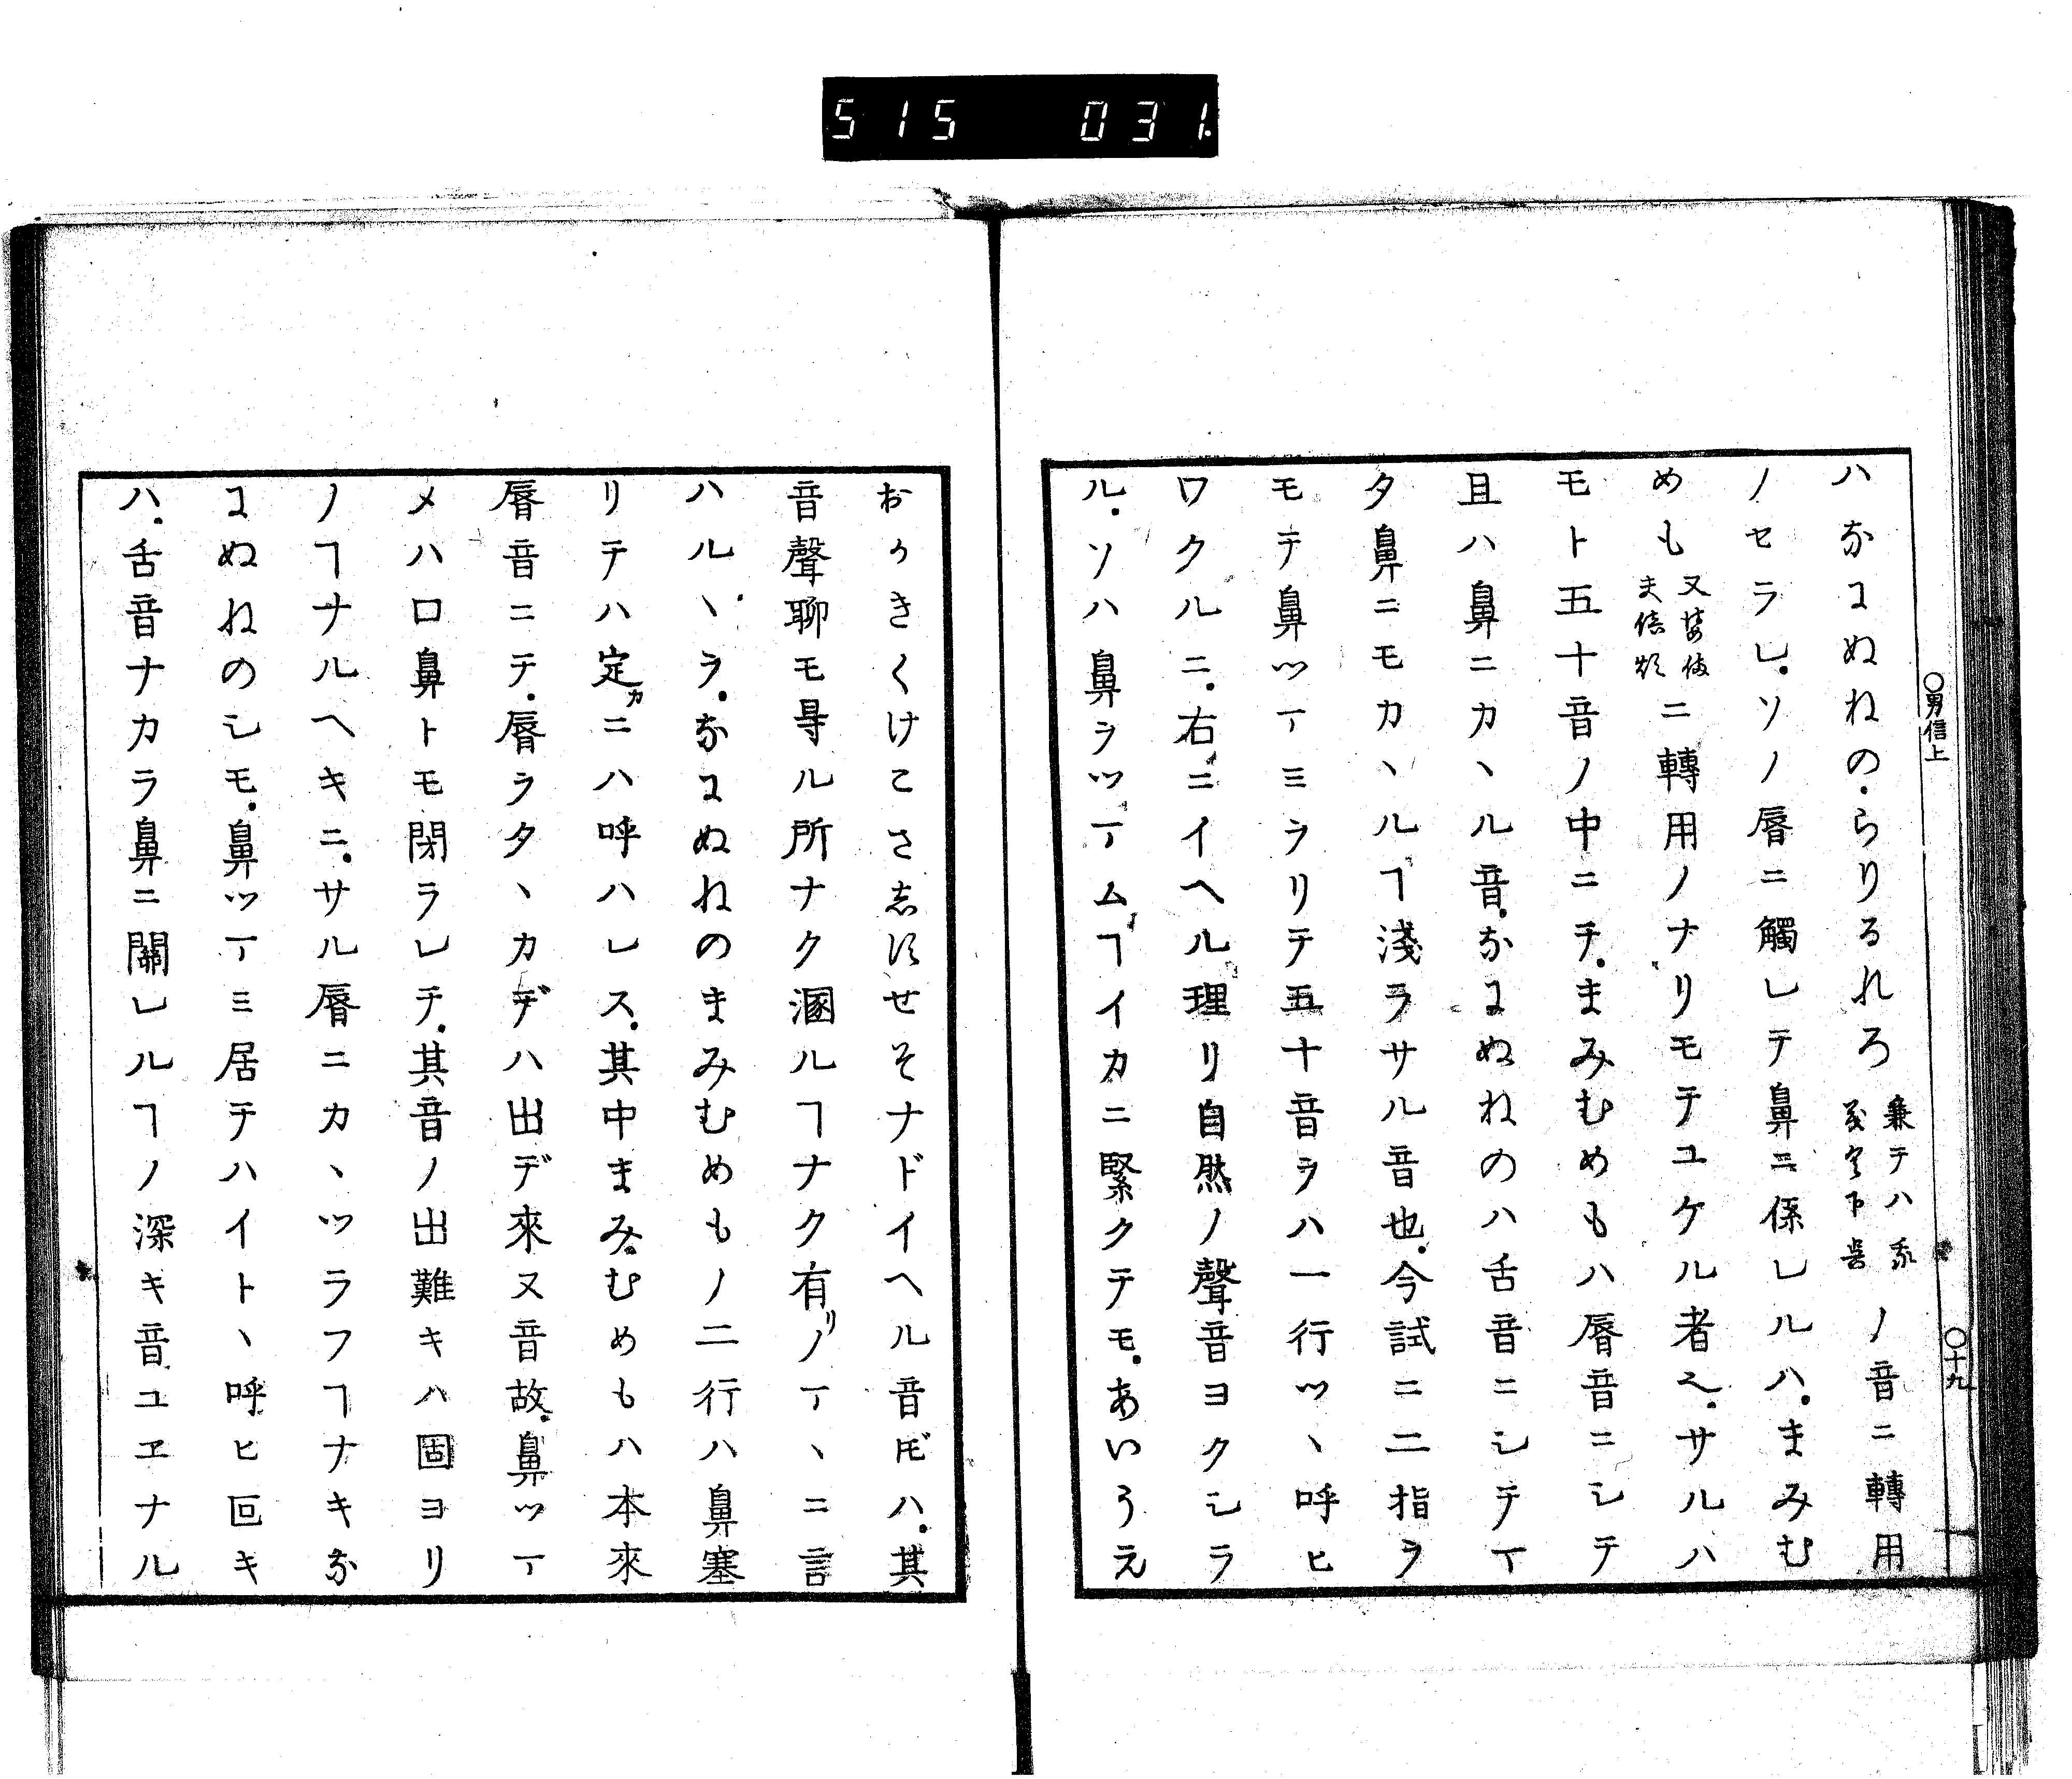 515 031.
○男信上
○十九
ハなにぬねの.らりるれろ兼テハノ音ニ轉用
ノセラレ.ソノ脣ニ觸レテ鼻ニ係レルハ.まみむ
めも又ニ轉用ノナリモテユケル者也.サルハ
モト五十音ノ中ニテ.まみむめもハ脣音ニシテ
且ハ鼻ニカヽル音.なにぬねのハ舌音ニシテイ
タ鼻ニモカヽルヿ淺ラサル音也.今試ニ二指ヲ
モテ鼻ツマミヲリテ五十音ヲハ一行ツヽ呼ヒ
ワクルニ.右ニイヘル理リ自然ノ聲音ヨクシラ
ル.ソハ鼻ヲツマムヿイカニ緊クテモ.あいうえ
おかきくけこさしすせそナドイヘル音𪜈ハ.其
音聲聊モ䙷ル所ナク溷ルヿナク有リノマヽニ言
ハルヽヲ.なにぬねのまみむめもノ二行ハ鼻塞
リテハ定カニハ呼ハレス.其中まみむめもハ本來
脣音ニテ.脣ヲタヽカデハ出デ來ヌ音故.鼻ツマ
メハ口鼻トモ閉ラレテ.其音ノ出難キハ固ヨリ
ノヿナルヘキニ.サル脣ニカヽツラフヿナキな
にぬねのシモ.鼻ツマミ居テハイトヽ呼ヒ回キ
ハ.舌音ナカラ鼻ニ關レルヿノ深キ音ユヱナル